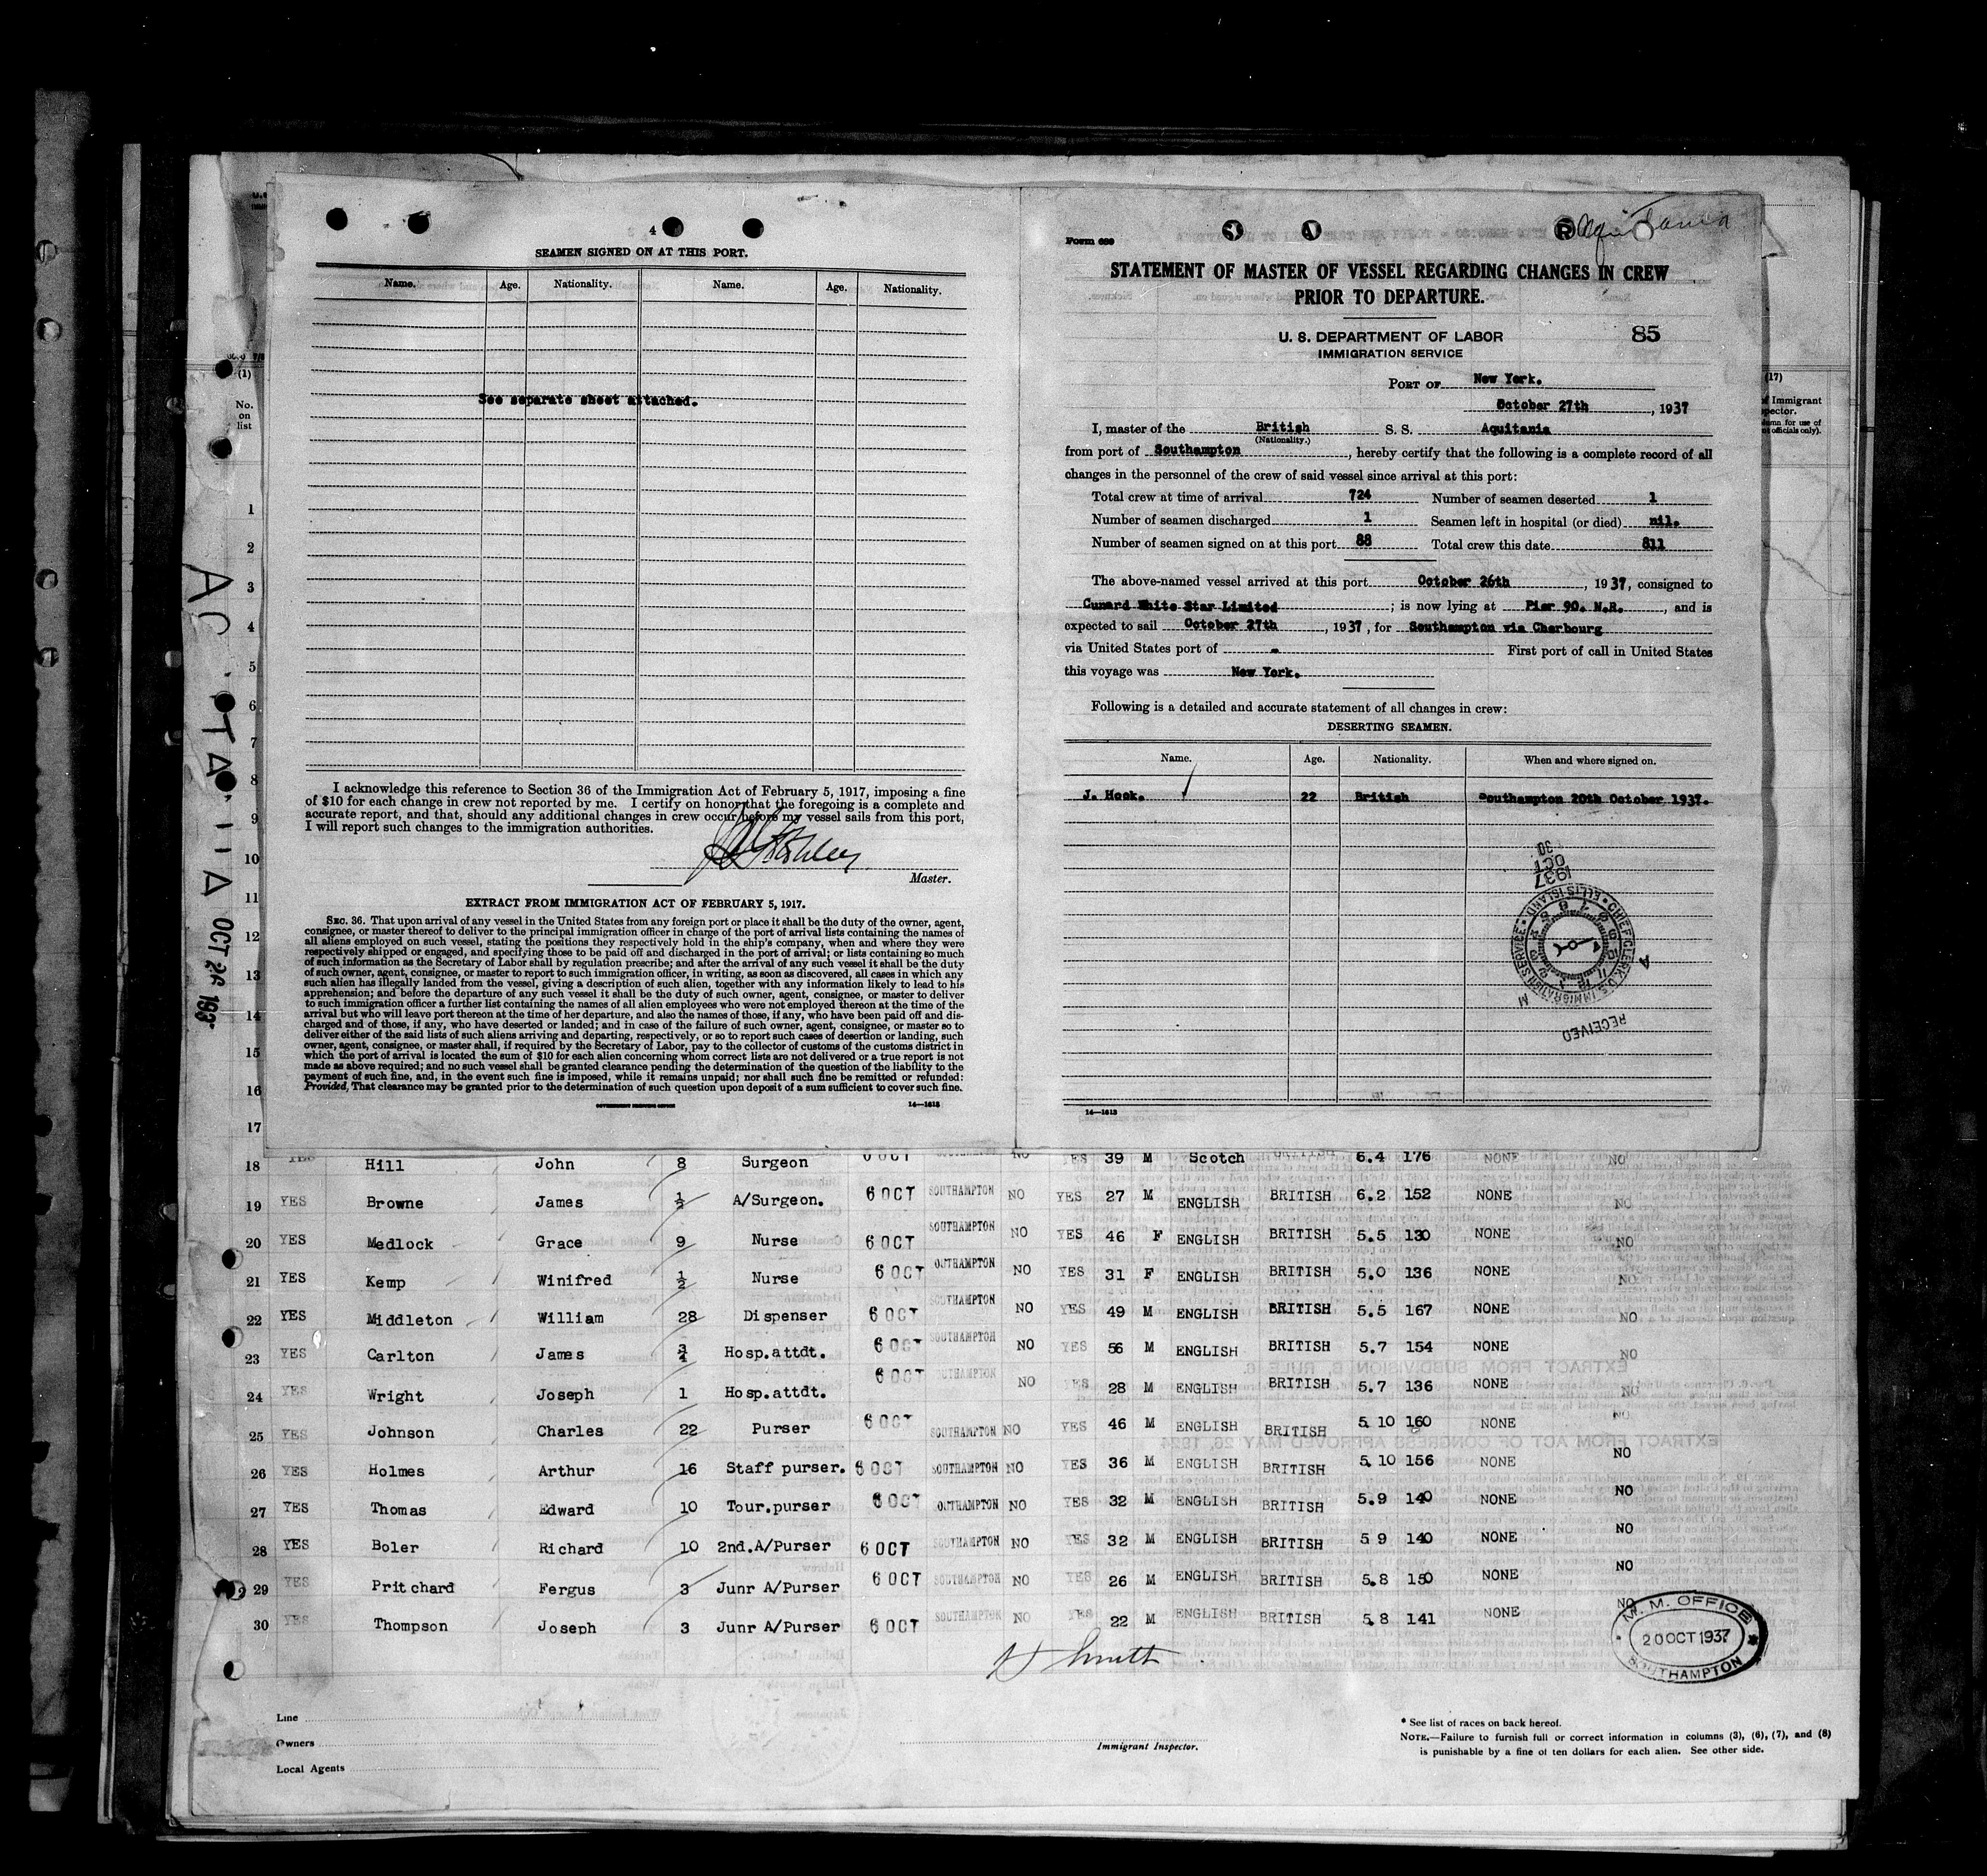 4
SEAMEN SIGNED ON AT THIS PORT.
Name. Age. Nationality. Name. Age. Nationality.
See separate sheet attached.
I acknowledge this reference to Section 36 of the Immigration Act of February 5, 1917, imposing a fine
of $10 for each change in crew not reported by me. I certify on honor that the foregoing is a complete and
accurate report, and that, should any additional changes in crew occur before my vessel sails from this port,
I will report such changes to the immigration authorities.
Master.
EXTRACT FROM IMMIGRATION ACT OF FEBRUARY 5, 1917.
SEC. 36. That upon arrival of any vessel in the United States from any foreign port or place it shall be the duty of the owner, agent,
consignee, or master thereof to deliver to the principal immigration officer in charge of the port of arrival lists containing the names of
all aliens employed on such vessel, stating the positions they respectively hold in the ship's company, when and where they were
respectively shipped or engaged, and specifying those to be paid off and discharged in the port of arrival; or lists containing so much
of such information as the Secretary of Labor shall by regulation prescribe; and after the arrival of any such vessel it shall be the duty
of such owner, agent, consignee, or master to report to such immigration officer, in writing, as soon as discovered, all cases in which any
such alien has illegally landed from the vessel, giving a description of such alien, together with any information likely to lead to his
apprehension; and before the departure of any such vessel it shall be the duty of such owner, agent, consignee, or master to deliver
to such immigration officer a further list containing the names of all alien employees who were not employed thereon at the time of the
arrival but who will leave port thereon at the time of her departure, and also the names of those, if any, who have been paid off and dis-
charged and of those, if any, who have deserted or landed; and in case of the failure of such owner, agent, consignee, or master so to
deliver either of the said lists of such aliens arriving and departing, respectively, or so to report such cases of desertion or landing, such
owner, agent, consignee, or master shall, if required by the Secretary of Labor, pay to the collector of customs of the customs district in
which the port of arrival is located the sum of $10 for each alien concerning whom correct lists are not delivered or a true report is not
made as above required; and no such vessel shall be granted clearance pending the determination of the question of the liability to the
payment of such fine, and, in the event such fine is imposed, while it remains unpaid; nor shall such fine be remitted or refunded:
Provided, That clearance may be granted prior to the determination of such question upon deposit of a sum sufficient to cover such fine.
GOVERNMENT PRINTING OFFICE 14—1613
Form 689
Aquitania
STATEMENT OF MASTER OF VESSEL REGARDING CHANGES IN CREW
PRIOR TO DEPARTURE.
U. S. DEPARTMENT OF LABOR 85
IMMIGRATION SERVICE
PORT OF New York.
October 27th, 1937
I, master of the British S. S. Aquitania
(Nationality.)
from port of Southampton, hereby certify that the following is a complete record of all
changes in the personnel of the crew of said vessel since arrival at this port:
Total crew at time of arrival 724 Number of seamen deserted 1
Number of seamen discharged 1 Seamen left in hospital (or died) nil.
Number of seamen signed on at this port 88 Total crew this date 811
The above-named vessel arrived at this port October 26th, 1937, consigned to
Cunard White Star Limited; is now lying at Pier 90. N.R., and is
expected to sail October 27th, 1937, for Southampton via Cherbourg
via United States port of - First port of call in United States
this voyage was New York.
Following is a detailed and accurate statement of all changes in crew:
DESERTING SEAMEN.
Name. Age. Nationality. When and where signed on.
J. Hook. 22 British Southampton 20th October 1937.
1937
OCT
30
CHIEF CLERK U.S. IMMIGRATION SERVICE ELLIS ISLAND
RECEIVED
14—1613
(1)
No.
on
list
(17)
of Immigrant
OCT 26 193
1
2
3
4
5
6
7
8
9
10
11
12
13
14
15
16
17
18 YES Hill John 8 Surgeon 6 OCT NO YES 39 M Scotch BRITISH 6.4 176 NONE NO
19 YES Browne James ½ A/Surgeon. 6 OCT SOUTHAMPTON NO YES 27 M ENGLISH BRITISH 6.2 152 NONE NO
20 YES Medlock Grace 9 Nurse 6 OCT SOUTHAMPTON NO YES 46 F ENGLISH BRITISH 5.5 130 NONE NO
21 YES Kemp Winifred ½ Nurse 6 OCT OUTHAMPTON NO YES 31 F ENGLISH BRITISH 5.0 136 NONE NO
22 YES Middleton William 28 Dispenser 6 OCT SOUTHAMPTON NO YES 49 M ENGLISH BRITISH 5.5 167 NONE NO
23 YES Carlton James ¾ Hosp.attdt. 6 OCT SOUTHAMPTON NO YES 56 M ENGLISH BRITISH 5.7 154 NONE NO
24 YES Wright Joseph 1 Hosp.attdt. 6 OCT SOUTHAMPTON NO YES 28 M ENGLISH BRITISH 5.7 136 NONE NO
25 YES Johnson Charles 22 Purser 6 OCT SOUTHAMPTON NO YES 46 M ENGLISH BRITISH 5.10 160 NONE NO
26 YES Holmes Arthur 16 Staff purser. 6 OCT SOUTHAMPTON NO YES 36 M ENGLISH BRITISH 5.10 156 NONE NO
27 YES Thomas Edward 10 Tour.purser 6 OCT OUTHAMPTON NO YES 32 M ENGLISH BRITISH 5.9 140 NONE NO
28 YES Boler Richard 10 2nd.A/Purser 6 OCT SOUTHAMPTON NO YES 32 M ENGLISH BRITISH 5 9 140 NONE NO
29 YES Pritchard Fergus 3 Junr A/Purser 6 OCT SOUTHAMPTON NO YES 26 M ENGLISH BRITISH 5.8 150 NONE NO
30 YES Thompson Joseph 3 Junr A/Purser 6 OCT SOUTHAMPTON NO YES 22 M ENGLISH BRITISH 5.8 141 NONE NO
M. M. OFFICE
20 OCT 1937
SOUTHAMPTON
Line
Owners
Local Agents
Immigrant Inspector.
* See list of races on back hereof.
NOTE.—Failure to furnish full or correct information in columns (3), (6), (7), and (8)
is punishable by a fine of ten dollars for each alien. See other side.